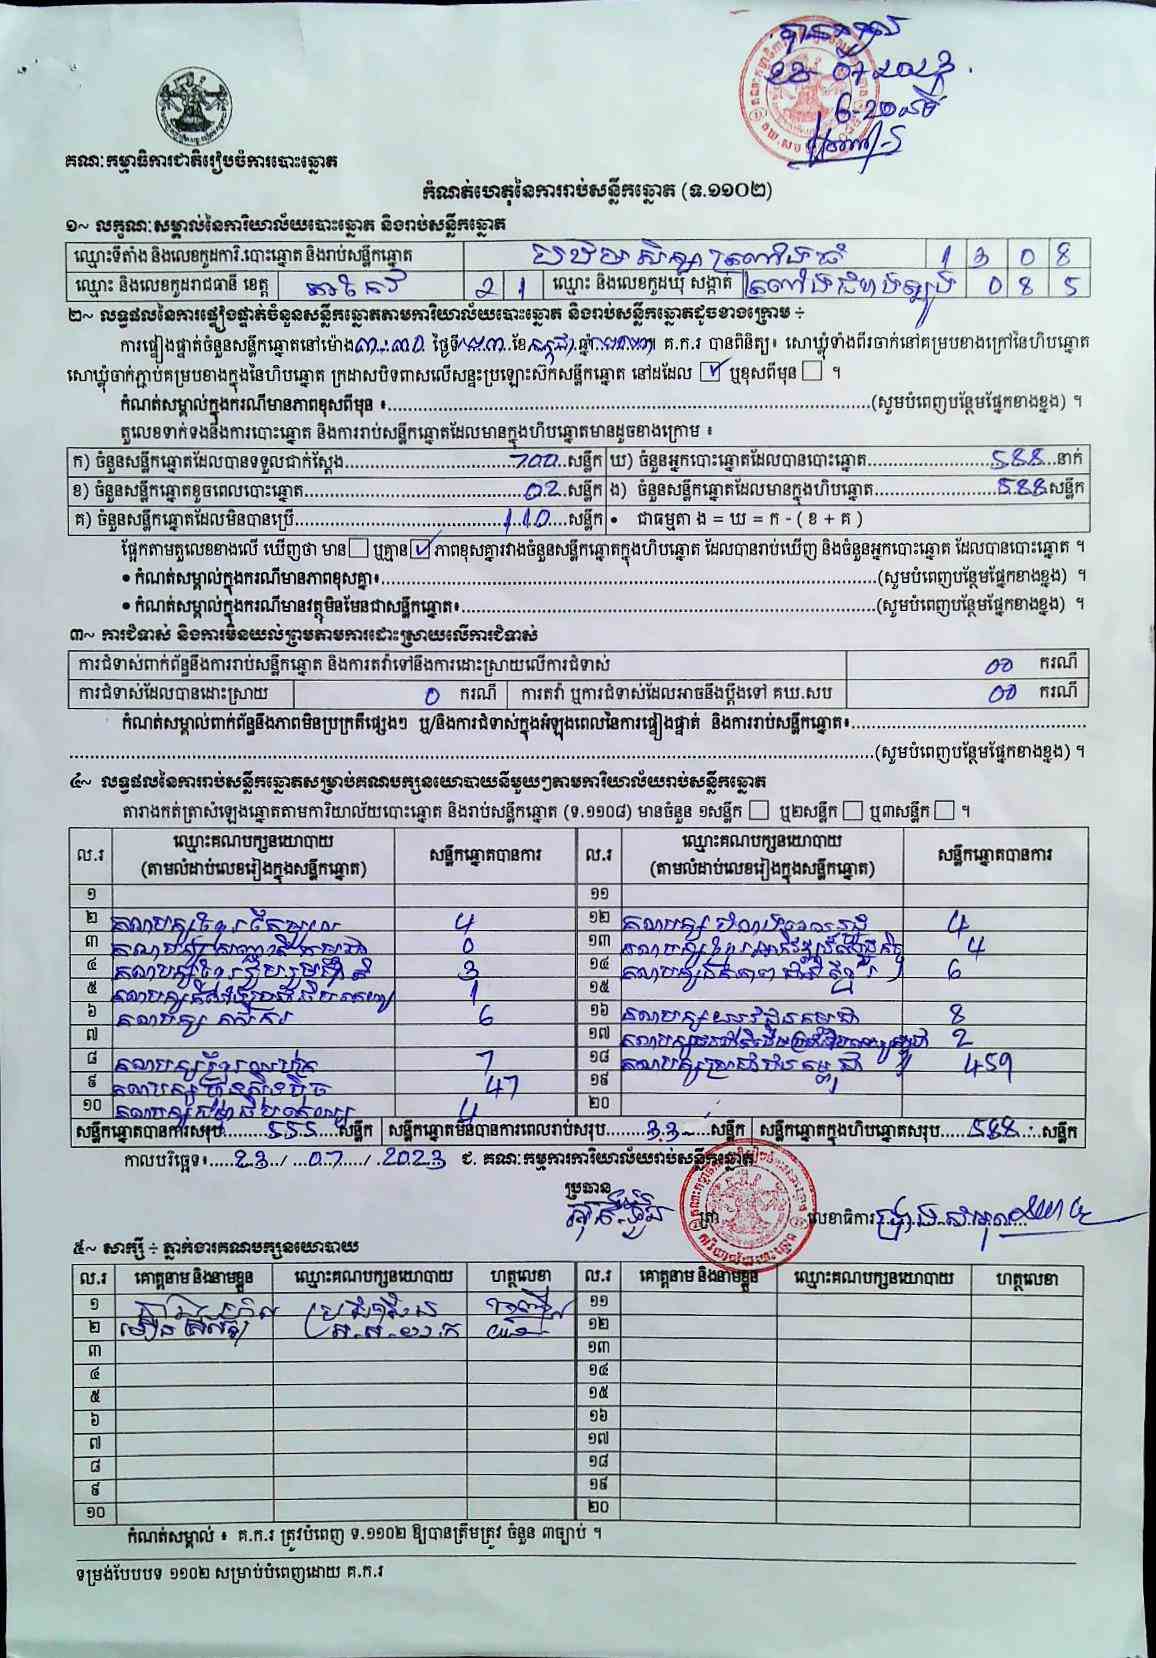 គណៈកម្មាធិការជាតិរៀបចំការបោះឆ្នោត
កំណត់ហេតុនៃការរាប់សន្លឹកឆ្នោត (ទ.១១០២)
១~ លក្ខណៈសម្គាល់នៃការិយាល័យបោះឆ្នោត និងរាប់សន្លឹកឆ្នោត
ឈ្មោះទីតាំង និងលេខកូដការិ.បោះឆ្នោត និងរាប់សន្លឹកឆ្នោត 1 3 0 8
ឈ្មោះ និងលេខកូដរាជធានី ខេត្ត តាកែវ 2 1 ឈ្មោះ និងលេខកូដឃុំ សង្កាត់ 0 8 5
២~ លទ្ធផលនៃការផ្ទៀងផ្ទាត់ចំនួនសន្លឹកឆ្នោតតាមការិយាល័យបោះឆ្នោត និងរាប់សន្លឹកឆ្នោតដូចខាងក្រោម ÷
ការផ្ទៀងផ្ទាត់ចំនួនសន្លឹកឆ្នោតនៅម៉ោង ៣:៣០ ថ្ងៃទី ២៣ ខែ កក្កដា ឆ្នាំ ២០២៣ គ.ក.រ បានពិនិត្យ៖ សោឃ្លុំទាំងពីរចាក់នៅគម្របខាងក្រៅនៃហិបឆ្នោត
សោឃ្លុំចាក់ភ្ជាប់គម្របខាងក្នុងនៃហិបឆ្នោត ក្រដាសបិទពាសលើសន្ទះប្រឡោះស៊កសន្លឹកឆ្នោត នៅដដែល ☑ ឬខុសពីមុន ☐ ។
កំណត់សម្គាល់ក្នុងករណីមានភាពខុសពីមុន ៖ (សូមបំពេញបន្ថែមផ្នែកខាងខ្នង) ។
តួលេខទាក់ទងនឹងការបោះឆ្នោត និងការរាប់សន្លឹកឆ្នោតដែលមានក្នុងហិបឆ្នោតមានដូចខាងក្រោម ៖
ក) ចំនួនសន្លឹកឆ្នោតដែលបានទទួលជាក់ស្តែង 700 សន្លឹក ឃ) ចំនួនអ្នកបោះឆ្នោតដែលបានបោះឆ្នោត 588 នាក់
ខ) ចំនួនសន្លឹកឆ្នោតខូចពេលបោះឆ្នោត 02 សន្លឹក ង) ចំនួនសន្លឹកឆ្នោតដែលមានក្នុងហិបឆ្នោត 588 សន្លឹក
គ) ចំនួនសន្លឹកឆ្នោតដែលមិនបានប្រើ 110 សន្លឹក • ជាធម្មតា ង = ឃ = ក - ( ខ + គ )
ផ្អែកតាមតួលេខខាងលើ ឃើញថា មាន ☐ ឬគ្មាន ☑ ភាពខុសគ្នារវាងចំនួនសន្លឹកឆ្នោតក្នុងហិបឆ្នោត ដែលបានរាប់ឃើញ និងចំនួនអ្នកបោះឆ្នោត ដែលបានបោះឆ្នោត ។
• កំណត់សម្គាល់ក្នុងករណីមានភាពខុសគ្នា៖ (សូមបំពេញបន្ថែមផ្នែកខាងខ្នង) ។
• កំណត់សម្គាល់ក្នុងករណីមានវត្ថុមិនមែនជាសន្លឹកឆ្នោត៖ (សូមបំពេញបន្ថែមផ្នែកខាងខ្នង) ។
៣~ ការជំទាស់ និងការមិនយល់ព្រមតាមការដោះស្រាយលើការជំទាស់
ការជំទាស់ពាក់ព័ន្ធនឹងការរាប់សន្លឹកឆ្នោត និងការតវ៉ាទៅនឹងការដោះស្រាយលើការជំទាស់ 00 ករណី
ការជំទាស់ដែលបានដោះស្រាយ 0 ករណី ការតវ៉ា ឬការជំទាស់ដែលអាចនឹងប្តឹងទៅ គឃ.សប 00 ករណី
កំណត់សម្គាល់ពាក់ព័ន្ធនឹងភាពមិនប្រក្រតីផ្សេងៗ ឬ/និងការជំទាស់ក្នុងអំឡុងពេលនៃការផ្ទៀងផ្ទាត់ និងការរាប់សន្លឹកឆ្នោត៖
(សូមបំពេញបន្ថែមផ្នែកខាងខ្នង) ។
៤~ លទ្ធផលនៃការរាប់សន្លឹកឆ្នោតសម្រាប់គណបក្សនយោបាយនីមួយៗតាមការិយាល័យរាប់សន្លឹកឆ្នោត
តារាងកត់ត្រាសំឡេងឆ្នោតតាមការិយាល័យបោះឆ្នោត និងរាប់សន្លឹកឆ្នោត (ទ.១១០៨) មានចំនួន ១សន្លឹក ☐ ឬ២សន្លឹក ☐ ឬ៣សន្លឹក ☐ ។
ល.រ ឈ្មោះគណបក្សនយោបាយ (តាមលំដាប់លេខរៀងក្នុងសន្លឹកឆ្នោត) សន្លឹកឆ្នោតបានការ ល.រ ឈ្មោះគណបក្សនយោបាយ (តាមលំដាប់លេខរៀងក្នុងសន្លឹកឆ្នោត) សន្លឹកឆ្នោតបានការ
១ ១១
២ គណបក្ស 4 ១២ គណបក្ស 4
៣ គណបក្ស 0 ១៣ គណបក្ស 4
៤ គណបក្ស 3 ១៤ គណបក្ស 6
៥ គណបក្ស 1 ១៥
៦ គណបក្ស កសិករ 6 ១៦ គណបក្ស 8
៧ ១៧ គណបក្ស 2
៨ គណបក្ស 7 ១៨ គណបក្សប្រជាជនកម្ពុជា 459
៩ គណបក្សហ្វ៊ុនស៊ិនប៉ិច 47 ១៩
១០ គណបក្ស 4 ២០
សន្លឹកឆ្នោតបានការសរុប 555 សន្លឹក សន្លឹកឆ្នោតមិនបានការពេលរាប់សរុប 33 សន្លឹក សន្លឹកឆ្នោតក្នុងហិបឆ្នោតសរុប 588 សន្លឹក
កាលបរិច្ឆេទ៖ 23 / 07 / 2023 ជ. គណៈកម្មការការិយាល័យរាប់សន្លឹកឆ្នោត
ប្រធាន
ត្រា លេខាធិការ
៥~ សាក្សី ÷ ភ្នាក់ងារគណបក្សនយោបាយ
ល.រ គោត្តនាម និងនាមខ្លួន ឈ្មោះគណបក្សនយោបាយ ហត្ថលេខា ល.រ គោត្តនាម និងនាមខ្លួន ឈ្មោះគណបក្សនយោបាយ ហត្ថលេខា
១ ប្រជាជន ១១
២ ១២
៣ ១៣
៤ ១៤
៥ ១៥
៦ ១៦
៧ ១៧
៨ ១៨
៩ ១៩
១០ ២០
កំណត់សម្គាល់ ៖ គ.ក.រ ត្រូវបំពេញ ទ.១១០២ ឱ្យបានត្រឹមត្រូវ ចំនួន ៣ច្បាប់ ។
ទម្រង់បែបបទ ១១០២ សម្រាប់បំពេញដោយ គ.ក.រ